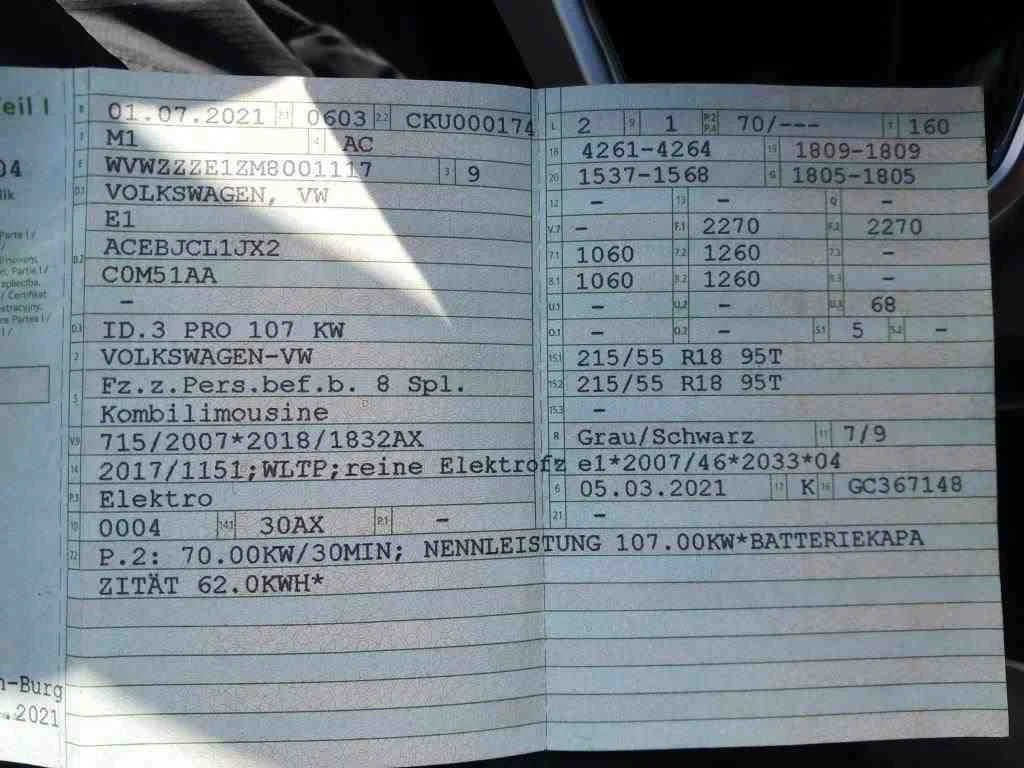 eil I
04
lik
Partie I /
B 01.07.2021 2.1 0603 2.2 CKU000174
J M1 4 AC
E WVWZZZE1ZM8001117 3 9
D.1 VOLKSWAGEN, VW
E1
D.2 ACEBJCL1JX2
C0M51AA
–
D.3 ID.3 PRO 107 KW
2 VOLKSWAGEN-VW
5 Fz.z.Pers.bef.b. 8 Spl.
Kombilimousine
V.9 715/2007*2018/1832AX
14 2017/1151;WLTP;reine Elektrofz
P.3 Elektro
10 0004 14.1 30AX P.1 –
L 2 9 1 P.2 P.4 70/--- T 160
18 4261-4264 19 1809-1809
20 1537-1568 G 1805-1805
12 – 13 – Q –
V.7 – F.1 2270 F.2 2270
7.1 1060 7.2 1260 7.3 –
8.1 1060 8.2 1260 8.3 –
U.1 – U.2 – U.3 68
O.1 – O.2 – S.1 5 S.2 –
15.1 215/55 R18 95T
15.2 215/55 R18 95T
15.3 –
R Grau/Schwarz 11 7/9
K e1*2007/46*2033*04
6 05.03.2021 17 K 16 GC367148
21 –
22 P.2: 70.00KW/30MIN; NENNLEISTUNG 107.00KW*BATTERIEKAPA
ZITÄT 62.0KWH*
n-Burg
.2021